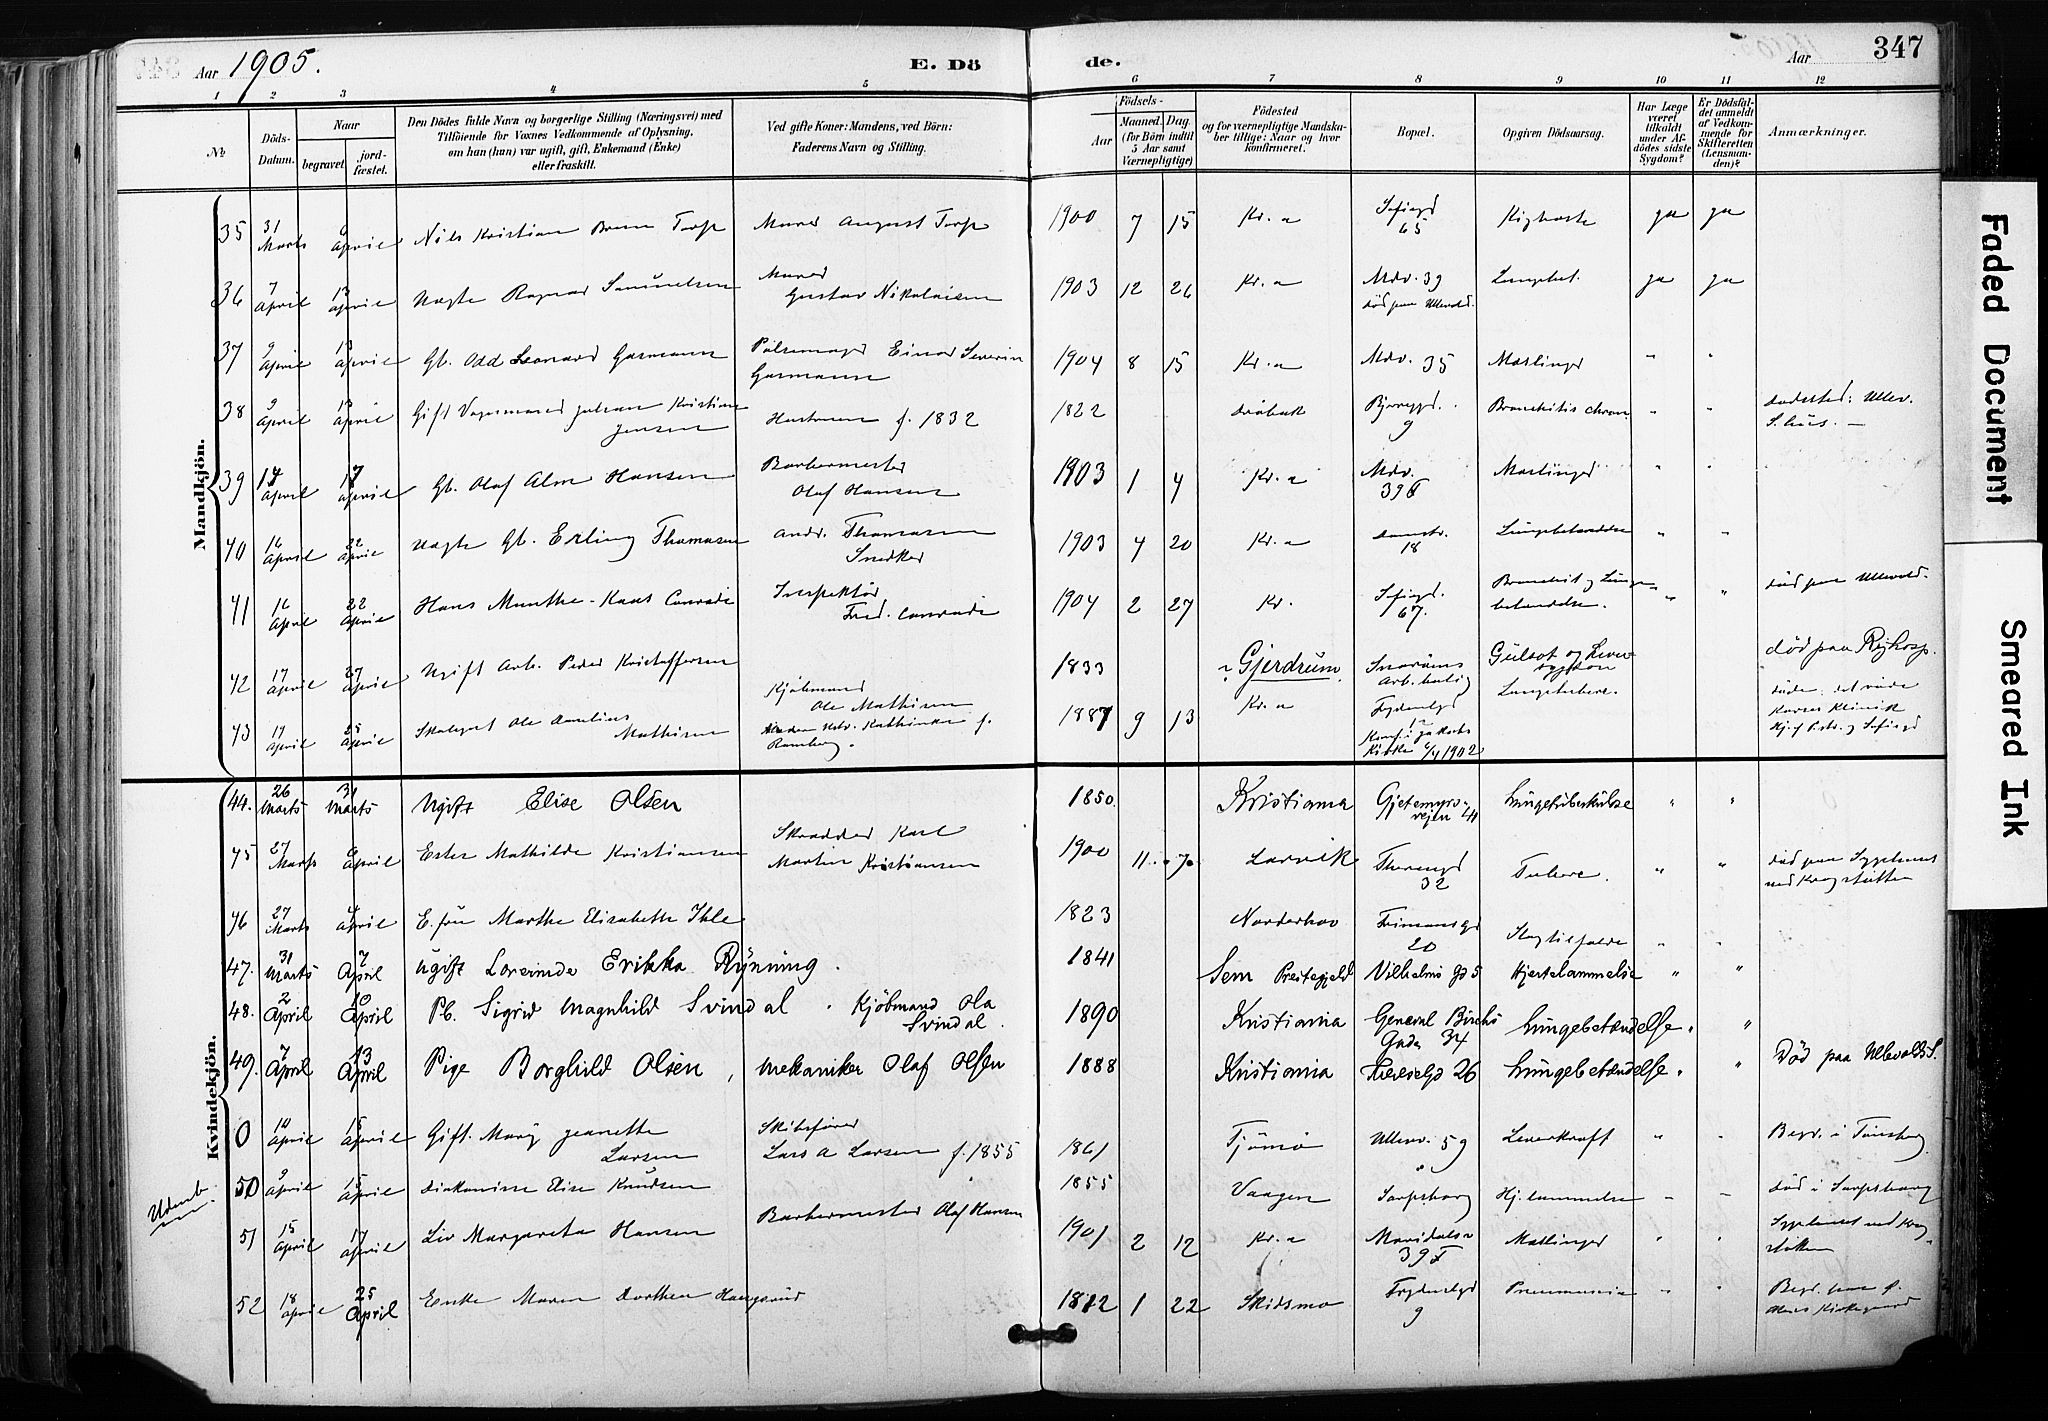 Aar 1905.
E. Dö
de.
Aar
347
1 2 3 4 5 6 7 8 9 10 11 12
№
Döds-Datum.
Naar
begravet
jord-fæstet.
Den Dödes fulde Navn og borgerlige Stilling (Næringsvei) med
Tilföiende for Voxnes Vedkommende af Oplysning,
om han (hun) var ugift, gift, Enkemand (Enke)
eller fraskilt.
Ved gifte Koner: Mandens, ved Börn:
Faderens Navn og Stilling.
Födsels-
Aar
Maaned. Dag.
(for Börn indtil
5 Aar samt
Værnepligtige)
Födested
og for værnepligtige Mandska-
ber tillige: Naar og hvor
konfirmeret.
Bopæl.
Opgiven Dödsaarsag.
Har Læge
været
tilkaldt
under Af-
dödes sidste
Sygdom?
Er Dödsfal-
det anmeldt
af Vedkom-
mende for
Skifteretten
(Lensman-
den)?
Anmærkninger.
Mandkjön.
35 31 Marts 6 April Nils Kristian Bruun Torp Murer August Torp 1900 7 15 Kr.a Sofiegd 65 Kighoste ja ja
36 7 April 13 April Uægte Ragnar Samuelsen Murer
Gustav Nikolaisen 1903 12 26 Kr.a Mdv. 39
død paa Ullevold. Lungebet. ja ja
37 9 April 13 April Gb. Odd Leonard Garmann Pølsemager Einar Severin
Garmann 1904 8 15 Kr.a Mdv. 35 Mæslinger " "
38 9 April 13 April Gift Vognmand Johan Kristian
Jensen Hustruen f. 1832 1822 Drøbak 9 Bronchitis chron. " " Dødssted: Ullev.
S.hus. —
39 14 April 17 April Gb. Olaf Alm Hansen Barbermester
Olaf Hansen 1903 1 4 Kr.a Mdv.
39 Mæslinger " "
40 16 April 22 April Uægte Gb. Erling Thomasen Andr. Thomasen
Snedker 1903 4 20 Kr.a Damstr.
18 Lungebetændelse " "
41 16 April 22 April Hans Munthe-Kaas Conradi Inspektør
Fred. Conradi 1904 2 27 Kr. Sofiegd.
67. Bronchit og Lunge-
betændelse. " " død paa Ullevold.
42 17 April 27 April Ugift Arb. Peder Kristoffersen 1833 Gjerdrum. Arb.bolig Gulsot og Lever
sygdom død paa Rijkosp.
43 17 April 25 April Skolegut Ole
Mathisen Kjøbmand
Ole Mathisen
Kathinka f.
Ramberg. 1887 9 13 Kr.a
Konf. i Jakobs
Kirke 6/4 1902 Lungetuberc. døde det røde
Korses Klinik
Kvindekjön.
44. 26 Marts 31 Marts Ugift Elise Olsen 1850 Kristiania Gjetemyrs-
veien 41 Lungetuberkulose " "
45 27 Marts 6 April Ester Mathilde Kristiansen Skrædder Karl
Martin Kristiansen 1900 11. 7 Larvik
32 Tuberc. " " død paa Sygehuset
ved Krogstøtten
46 27 Marts 4 April E. fru Marthe Elisabeth Ihle 1823 Norderhov Frimansgd
20 Slagtilfælde " "
47. 31 Marts 7 April Ugift Erikka Rynning. 1841 Sem Prestegjeld Vilhelms Gd 5 Hjertelammelse " "
48. 2 April 10 April Pb. Sigrid Magnhild Svindal. Kjøbmand Ola
Svindal. 1890 Kristiania General Birchs
Gade 34 Lungebetændelse " "
49. 7 April 13 April Pige Borghild Olsen, Mekaniker Olaf Olsen 1888 Kristiania Theresesgd 26 Lungebetændelse " " Død paa Ullevolds S.
0 10 April 15 April Gift. Mary Jeanette
Larsen Skibsfører
Lars A Larsen f. 1855 1861 Tjømø Ullev. 59 Leverkræft " " Begr. i Tønsberg
Udenb.
50 9 April 15 April Diakonisse Elise Knudsen 1855 Vaagen Sarpsborg Hj.lammelse " " død i Sarpsborg
51 15 April 17 April Liv Margareta Hansen Barbermester Olaf Hansen 1901 2 12 Kr.a Maridalsv
39 Mæslinger " " Sygehuset ved Krog-
støtten
52 18 April 25 April Enke Maren Dorthea Haugsrud 1812 1 22 Skidsmo Frydenlgd
9 Pneumonia " " Begr. paa
Kirkegaard
Faded Document
Smeared Ink